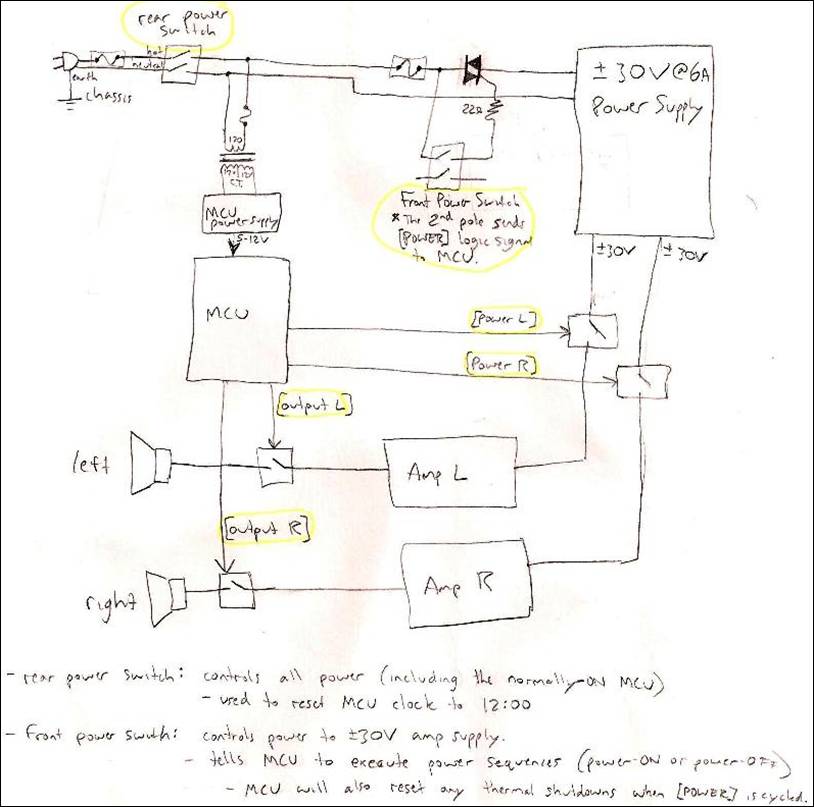 rear power
switch
hot
neutral
earth
chassis
± 30V@6A
Power Supply
22Ω
120
CT
MCU
power supply
5-12V
Front Power Switch
* The 2nd pole sends
[POWER] logic signal
to MCU.
±30V
±30V
MCU
[power L]
[Power R]
[output L]
left
Amp L
[output R]
right
Amp R
- rear power switch: controls all power (including the normally-ON MCU)
- used to reset MCU clock to 12:00
- Front power switch: controls power to ±30V amp supply.
- tells MCU to execute power sequences (power-ON or power-OFF)
- MCU will also reset any thermal shutdowns when [POWER] is cycled.